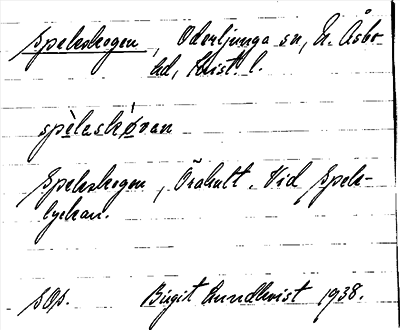 Speleskogen, Oderljunga sn, N. Åsbo
hd, Krist. l.
spèlaskóvan
Speleskogen, Örahult. Vid Spele-
lyckan.
sOp. Birgit Lundkvist 1938.